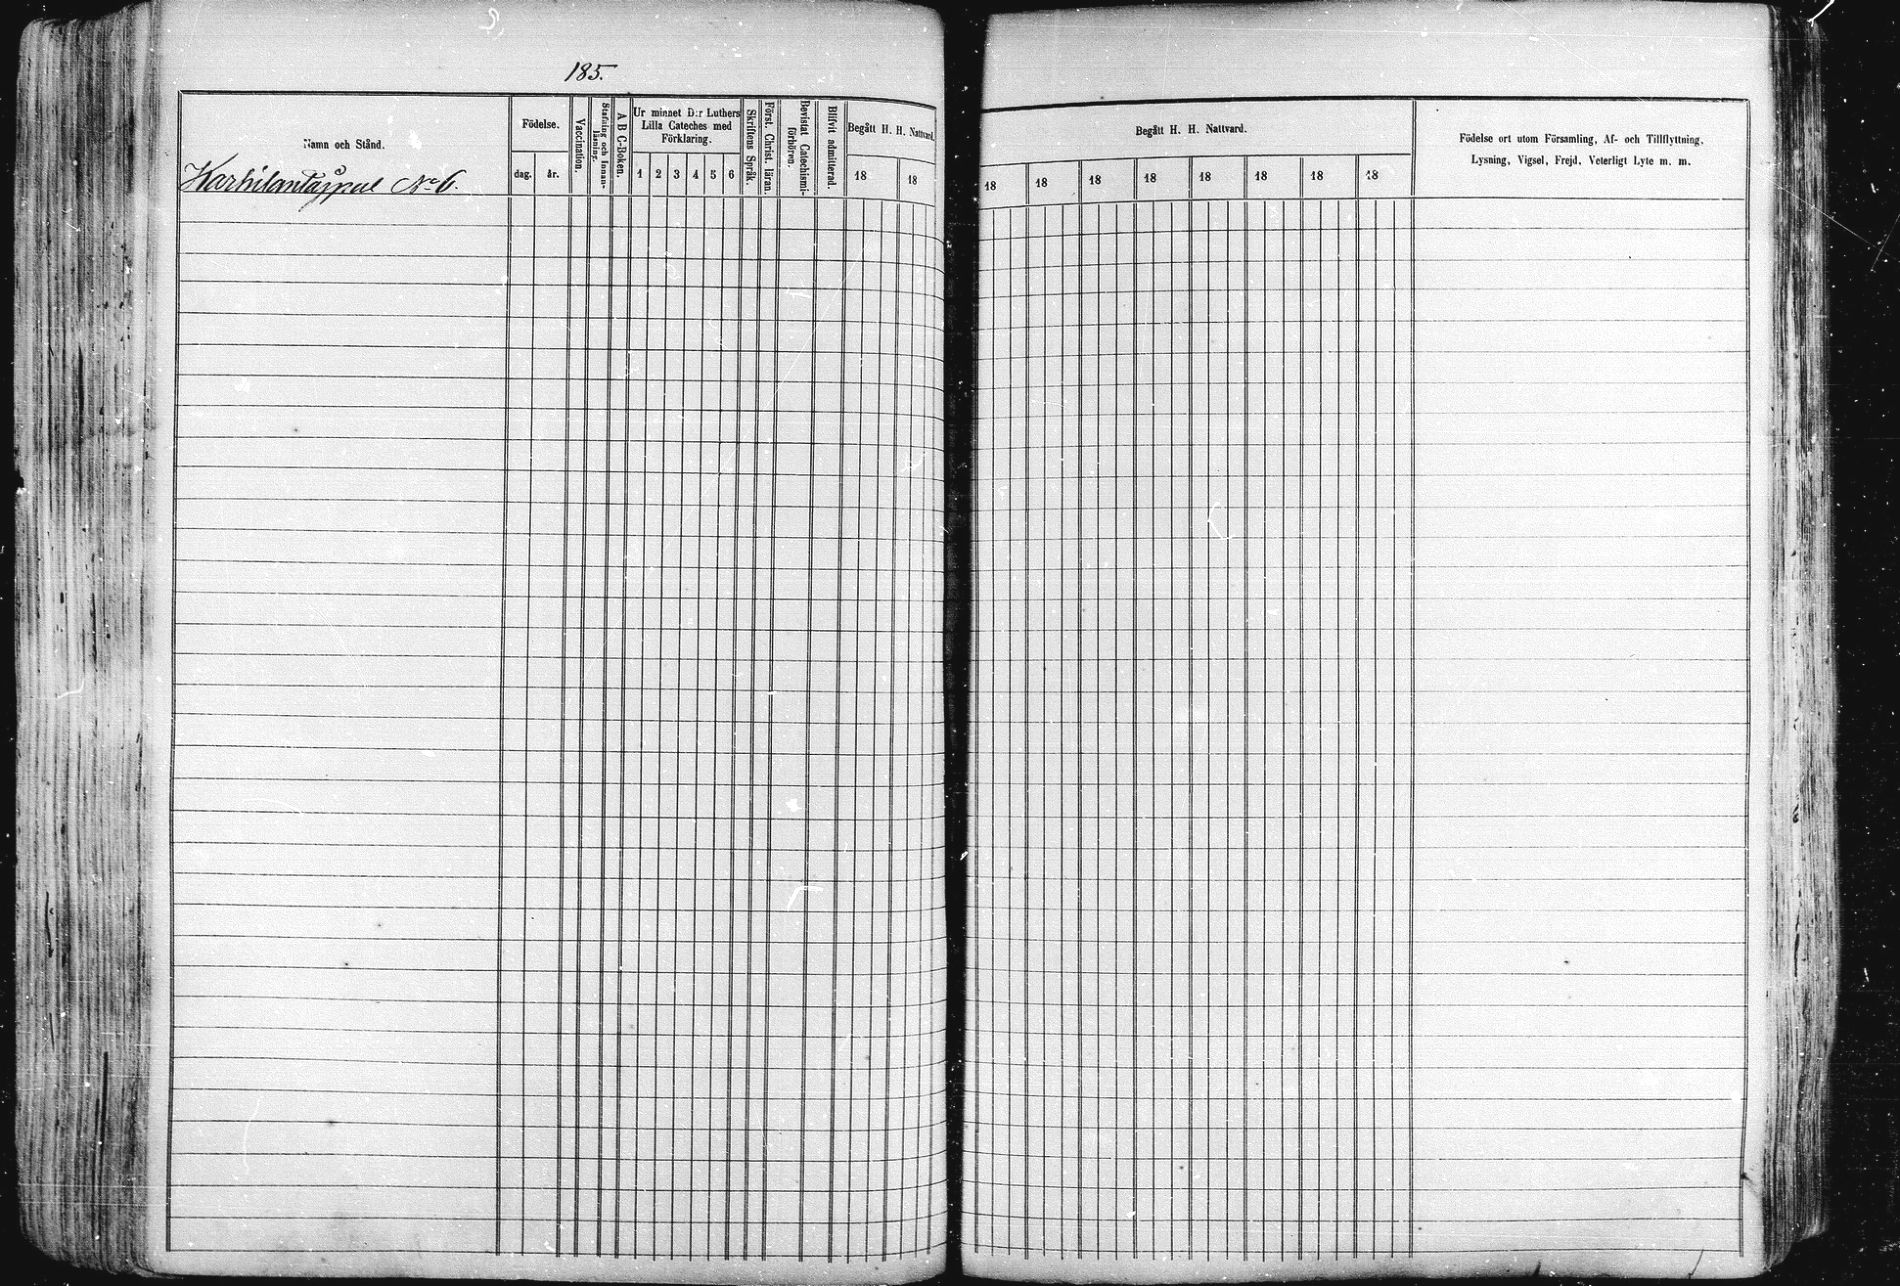 185.
Namn och Stånd.
Karhilantaypal No 6.
Födelse.
dag.
år.
Vaccination.
Stafning och Innan-
läsning.
A B C-Boken.
Ur minnet D:r Luthers
Lilla Cateches med
Förklaring.
1 2 3 4 5 6
Skriftens Språk.
Först. Christ. läran.
Bevistat Catechismi-
förhören.
Blifvit admitterad.
Begått H. H. Nattvard.
18 18
Begått H. H. Nattvard.
18 18 18 18 18 18 18 18
Födelse ort utom Församling, Af- och Tillflyttning,
Lysning, Vigsel, Frejd, Veterligt Lyte m. m.